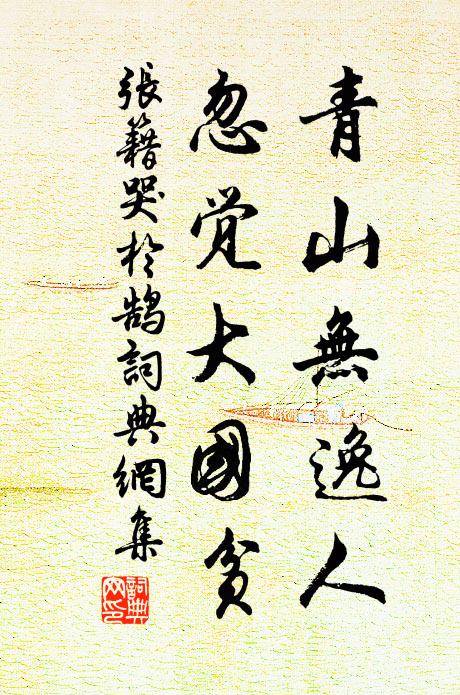 青山無逸人
忽觉大國貧
張籍哭於鵠詞典網集
詞典
网印